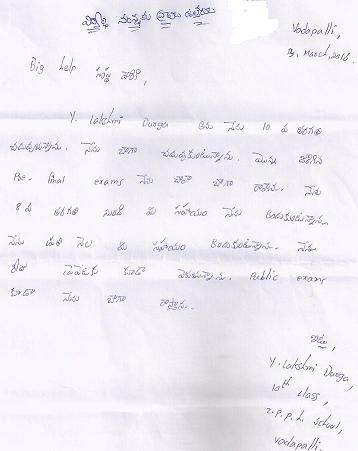 విద్యార్థి సంస్థకు వ్రాయు ఉత్తరం
Vadapalli,
March, 2016.
Big help సంస్థ వారికి,
Y. Lakshmi Durga అను నేను 10 వ తరగతి
చదువుతున్నాను. నేను బాగా చదువుకుంటున్నాను. మొన్న జరిగిన
Pre-final exams నేను చాలా బాగా రాశాను. నేను
8 వ తరగతి నుండి మీ సహాయం నేను అందుకుంటున్నాను.
నేను ప్రతి నెల మీ సహాయం అందుకుంటున్నాను. నేను
కూడా వెళుతున్నాను. Public exams
కూడా నేను బాగా రాస్తాను.
ఇట్లు,
Y. Lakshmi Durga,
10th class,
z.p.p.h. school,
vadapalli.